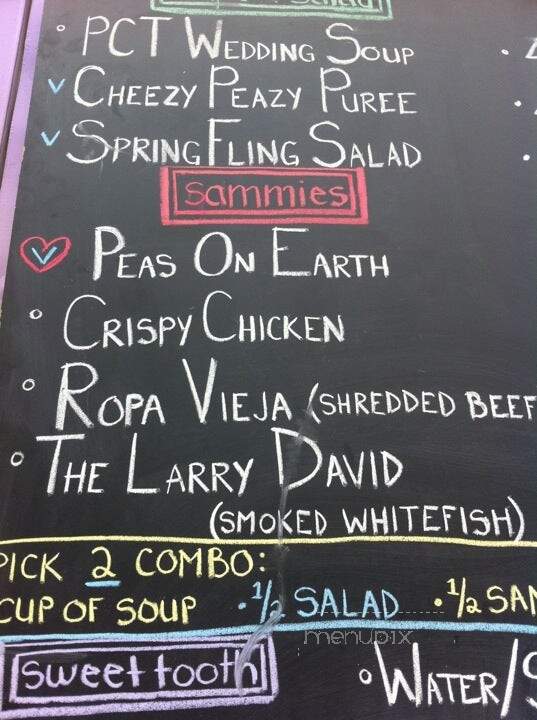 Salad
PCT WEDDING SOUP
CHEEZY PEAZY PUREE
SPRING FLING SALAD
sammies
PEAS ON EARTH
CRISPY CHICKEN
ROPA VIEJA (SHREDDED BEEF
THE LARRY DAVID
(SMOKED WHITEFISH)
PICK 2 COMBO:
CUP OF SOUP • 1/2 SALAD • 1/2 SAN
menupix
sweet tooth
WATER/S